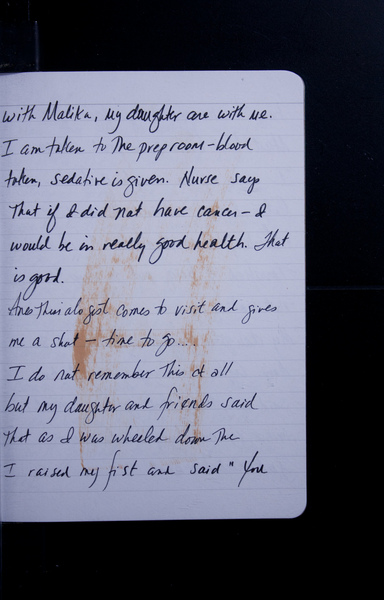 with Malika, my daughter are with me.
I am taken to the prep room - blood
taken, sedative is given. Nurse says
that if I did not have cancer - I
would be in really good health. That
is good.
Anesthesialogist comes to visit and gives
me a shot - time to go...
I do not remember this at all
but my daughter and friends said
that as I was wheeled down the
I raised my fist and said "You